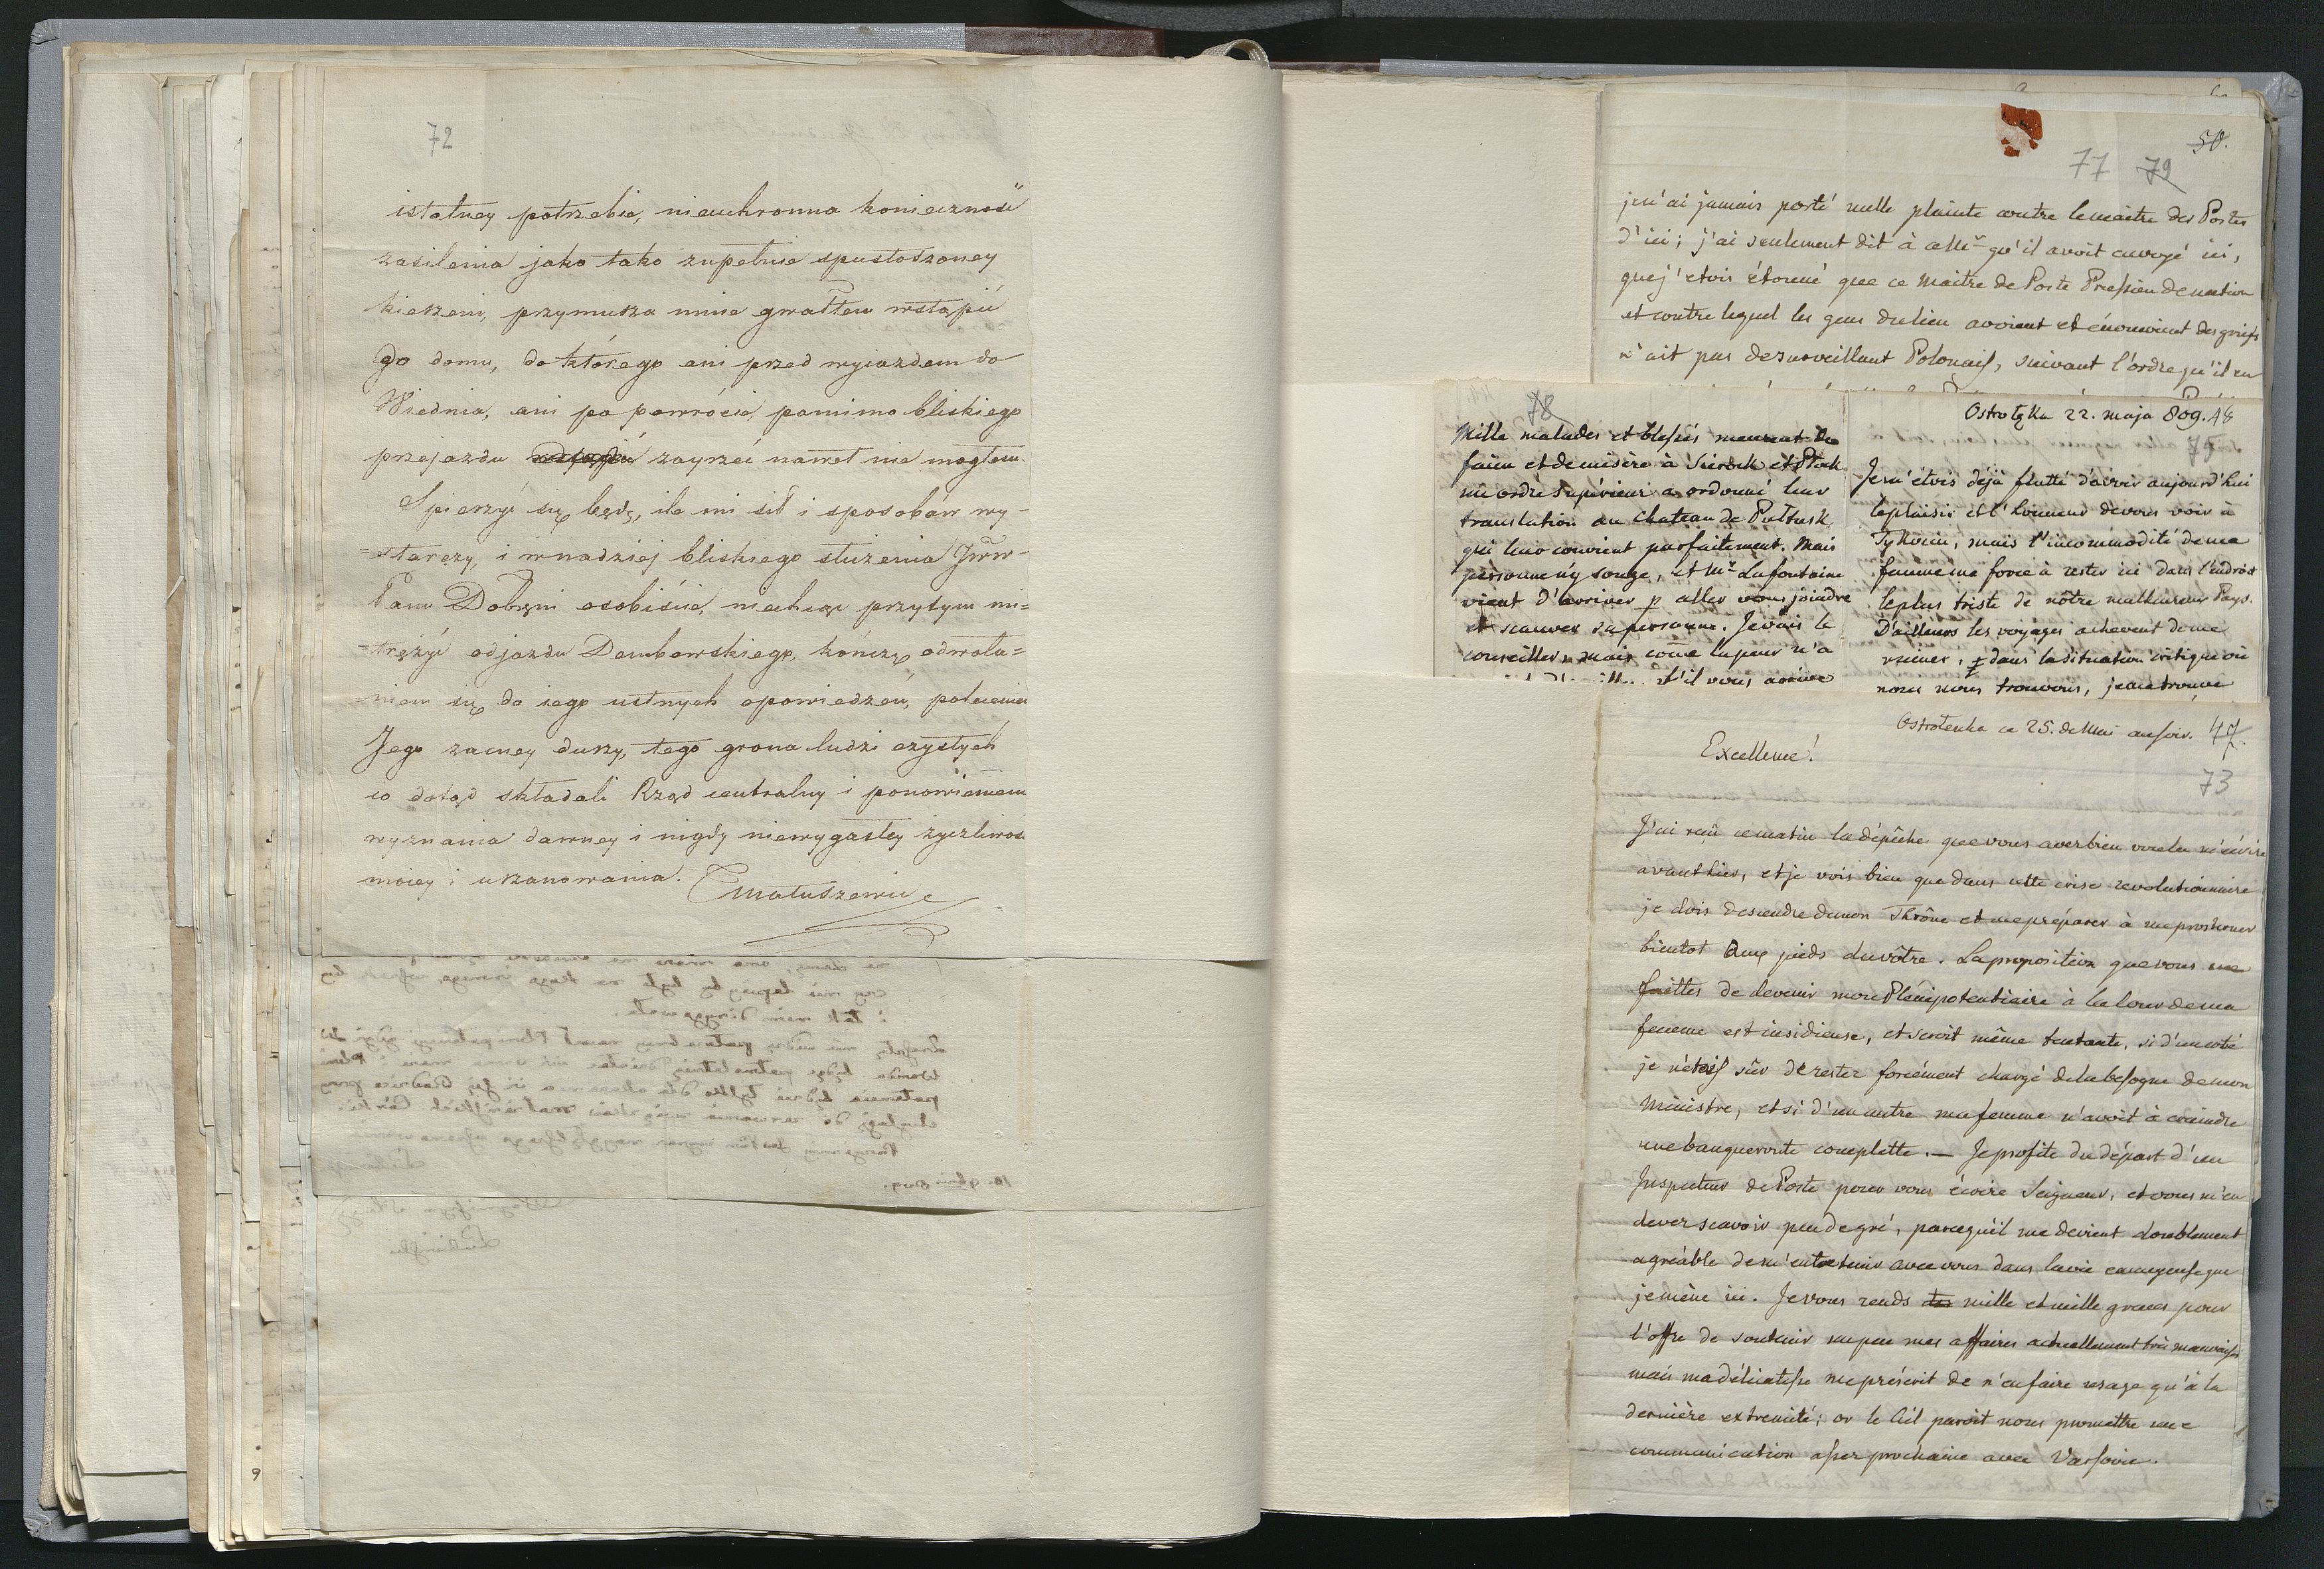 72
istotney potrzebie, nieuchronna konieczność
zasilenia jako tako zupełnie spustoszoney
kieszeni, przymusza mnie gwałtem wstąpić
do domu, do którego ani przed wyiazdem do
Wiednia, ani po powrócie, pomimo bliskiego
przejazdu zayrzéć nawet nie mogłem.
Spieszyć się będę, ile mi sił i sposobów wy-
=starczy, i w nadziej bliskiego służenia JWW-
Panu Dobrzni osobiście, niechcąc przytym mi=
=trężyć odjazdu Dembowskiego, kończę odwoła=
=niem się do iego ustnych opowiedzeń, poleceniem
Jego zacney duszy, tego grona ludzi czystych
co dotąd składali Rząd centralny i ponowieniem
wyznania dawney i nigdy niewygasłey życzliwości
moiey i uszanowania.
Matuszewic
50.
77 79
je n'ai jamais porté nulle plainte contre le maitre des Postes
d'ici; j'ai seulement dit à cellui qu'il avoit envoyé ici,
que j'etois étonné que ce Maitre de Poste Prussien de nation
et contre lequel les gens du lieu avoient et énonçoient des griefs
n'ait pas de surveillant Polonais, suivant l'ordre qu'il en
78
Mille malades et blessés meurent de
faim et de misère à Sierock et Plock
un ordre supérieur a ordonné leur
translation au chateau de Pultusk
qui leur convient parfaitement. Mais
personne n'y songe, et Mr Lafontaine
vient d'arriver pr aller vous joindre
et sauver sa personne. Je vais le
conseiller, mais come la peur n'a
s'il vous arrive
Ostrołęka 22. maja 809. 48
Je m'étois déjà flatté d'avoir aujourd'hui
le plaisir et l'honneur de vous voir à
Tykocin, mais l'incommodité de ma
femme me force à rester ici dans l'endroit
le plus triste de nôtre malheureux Pays.
D'ailleurs les voyages achevent de me
ruiner, & dans la situation critique où
nous nous trouvons, je me trouve
Ostrolenka ce 25. de Mai au soir. 47.
73
Excellence!
J'ai reçû ce matin la dépêche que vous avez bien voulu m'écrire
avant hier, et je vois bien que dans cette crise revolutionnaire
je dois descendre de mon Thrône et me préparer à me prosterner
bientot aux pieds du vôtre. La proposition que vous me
faittes de devenir mon Plénipotentiaire à la Cour de ma
femme est insidieuse, et seroit même tentante, si d'un coté
je n'étois sûr de rester forcément chargé de la besogne de mon
Ministre, et si d'un autre ma femme n'avoit à craindre
une banqueroute complette. — Je profite du départ d'un
Inspecteur de Poste pour vous écrire Seigneur, et vous m'en
devez scavoir peu de gré, parcequ'il me devient doublement
agréable de m'entretenir avec vous dans la vie ennuyeuse que
je mène ici. Je vous rends des mille et mille graces pour
l'offre de soutenir un peu mes affaires actuellement très mauvaises
mais ma délicatesse me préscrit de n'en faire usage qu'à la
dernière extremité; or le Ciel paroit nous promettre une
communication assez prochaine avec Varsovie.